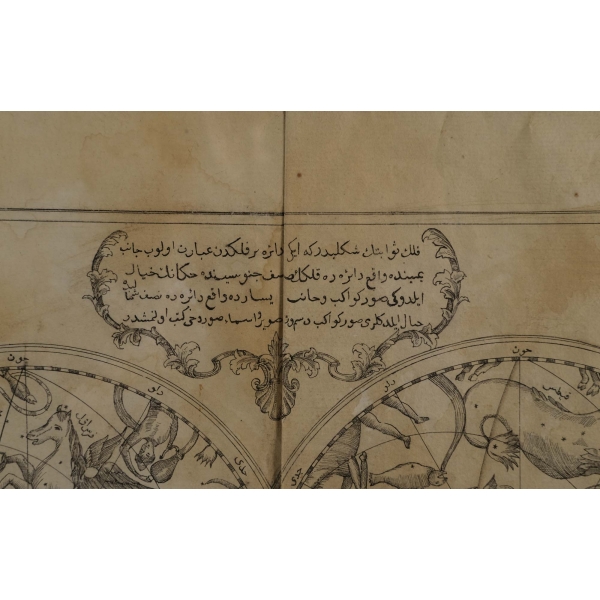 فلك ثوابتك شكليدر كه ايكى دائره بر فلكدن عبارت اولوب جانب
يمينده واقع دائره ده فلكك نصف جنوبيسنده حكمانك خيال
ايلدوكى صور كواكب و جانب يسارده واقع دائره ده نصف شماليده
خيال ايلدكلرى صور كواكب
حوت
دلو
جدى
حوت
دلو
جدى
قيطس